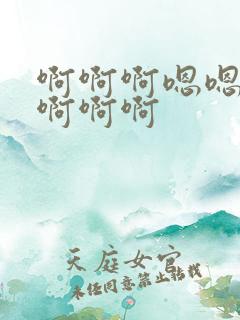 啊啊啊嗯嗯
啊啊啊
天庭女官
未经同意禁止转载